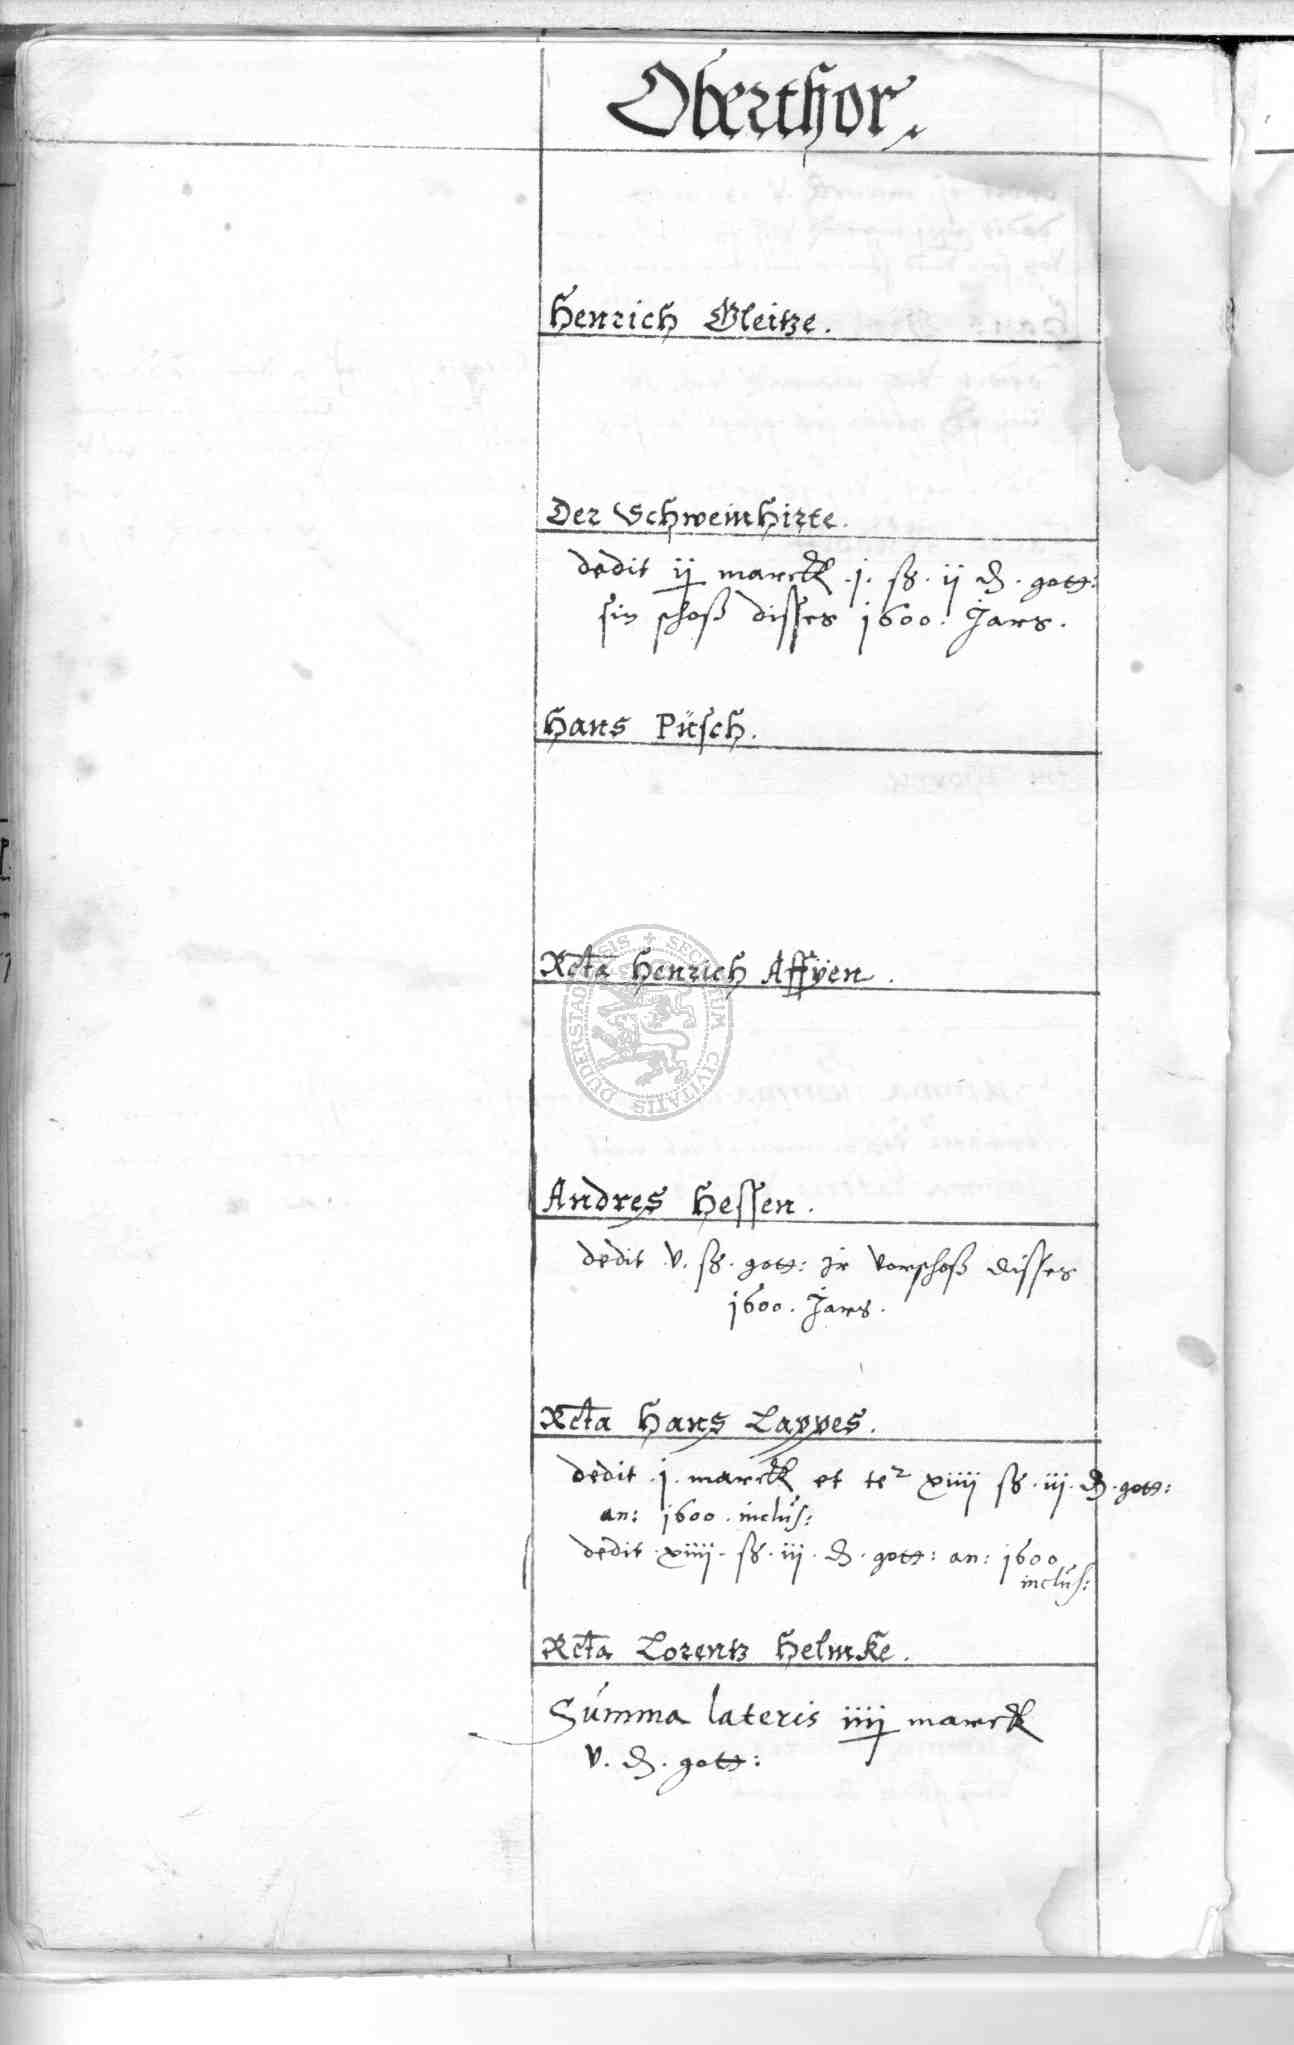 Oberthor.
Henrich Gleitze.
Der Schweinhirte.
dedit ij marck .j. ß. ij ₰. gott:
sin schoß disses 1600. Jars.
Hans Püsch.
Rcta Henrich Affÿen.
Andres Hessen.
dedit .v. ß. gott: jr vorschoß disses
1600. Jars.
Rcta Hans Lappes.
dedit .j. marck et ter xiiij ß. iij. ₰. gott:
an: 1600. inclus:
dedit .xiiij. ß. iij. ₰. gott: an: 1600
inclus:
Rcta Lorentz Helmke.
Summa lateris iiij marck
v. ₰. gott:
SECRETUM CIVITATIS DUDERSTADENSIS